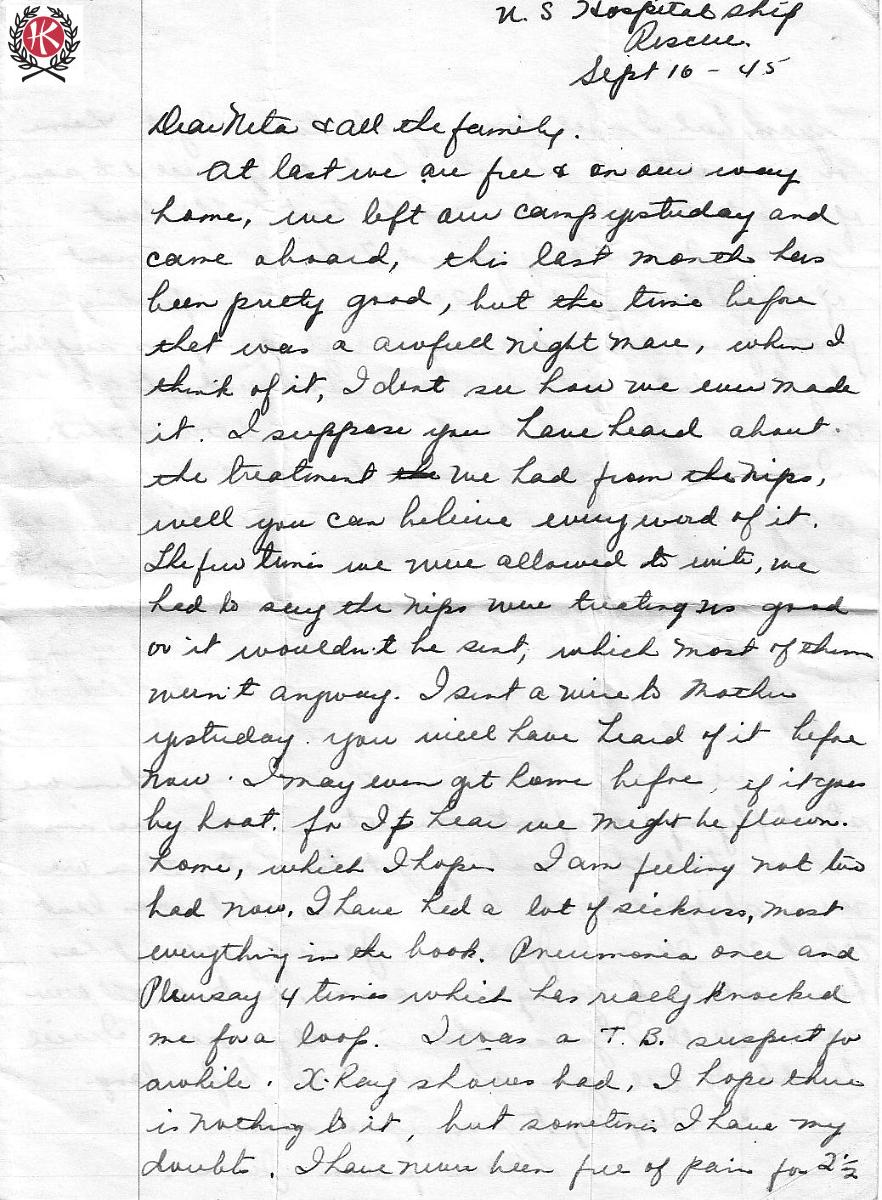 HK
U. S Hospital ship
Rescue.
Sept 16 - 45
Dear Neta & all the family.
At last we are free & on our way
home, we left our camp yesterday and
came aboard, this last month has
been pretty good, but the time before
that was a awfull night mare, when I
think of it, I dont see how we ever made
it. I suppose you have heard about
the treatment the we had from the Nips,
well you can believe every word of it.
The few times we were allowed to write, we
had to say the Nips were treating us good
or it wouldn't be sent, which most of them
weren't anyway. I sent a wire to Mother
yesterday. you will have heard of it before
now. I may even get home before, if it goes
by boat. for I hear we might be flown.
home, which I hope. I am feeling not too
bad now, I have had a lot of sickness, most
everything in the book. Pneumonia once and
Pleursay 4 times which has really knocked
me for a loop. I was a T. B. suspect for
awhile. X-Ray shows bad, I hope there
is nothing to it, but sometimes I have my
doubts. I have never been free of pain for 2½